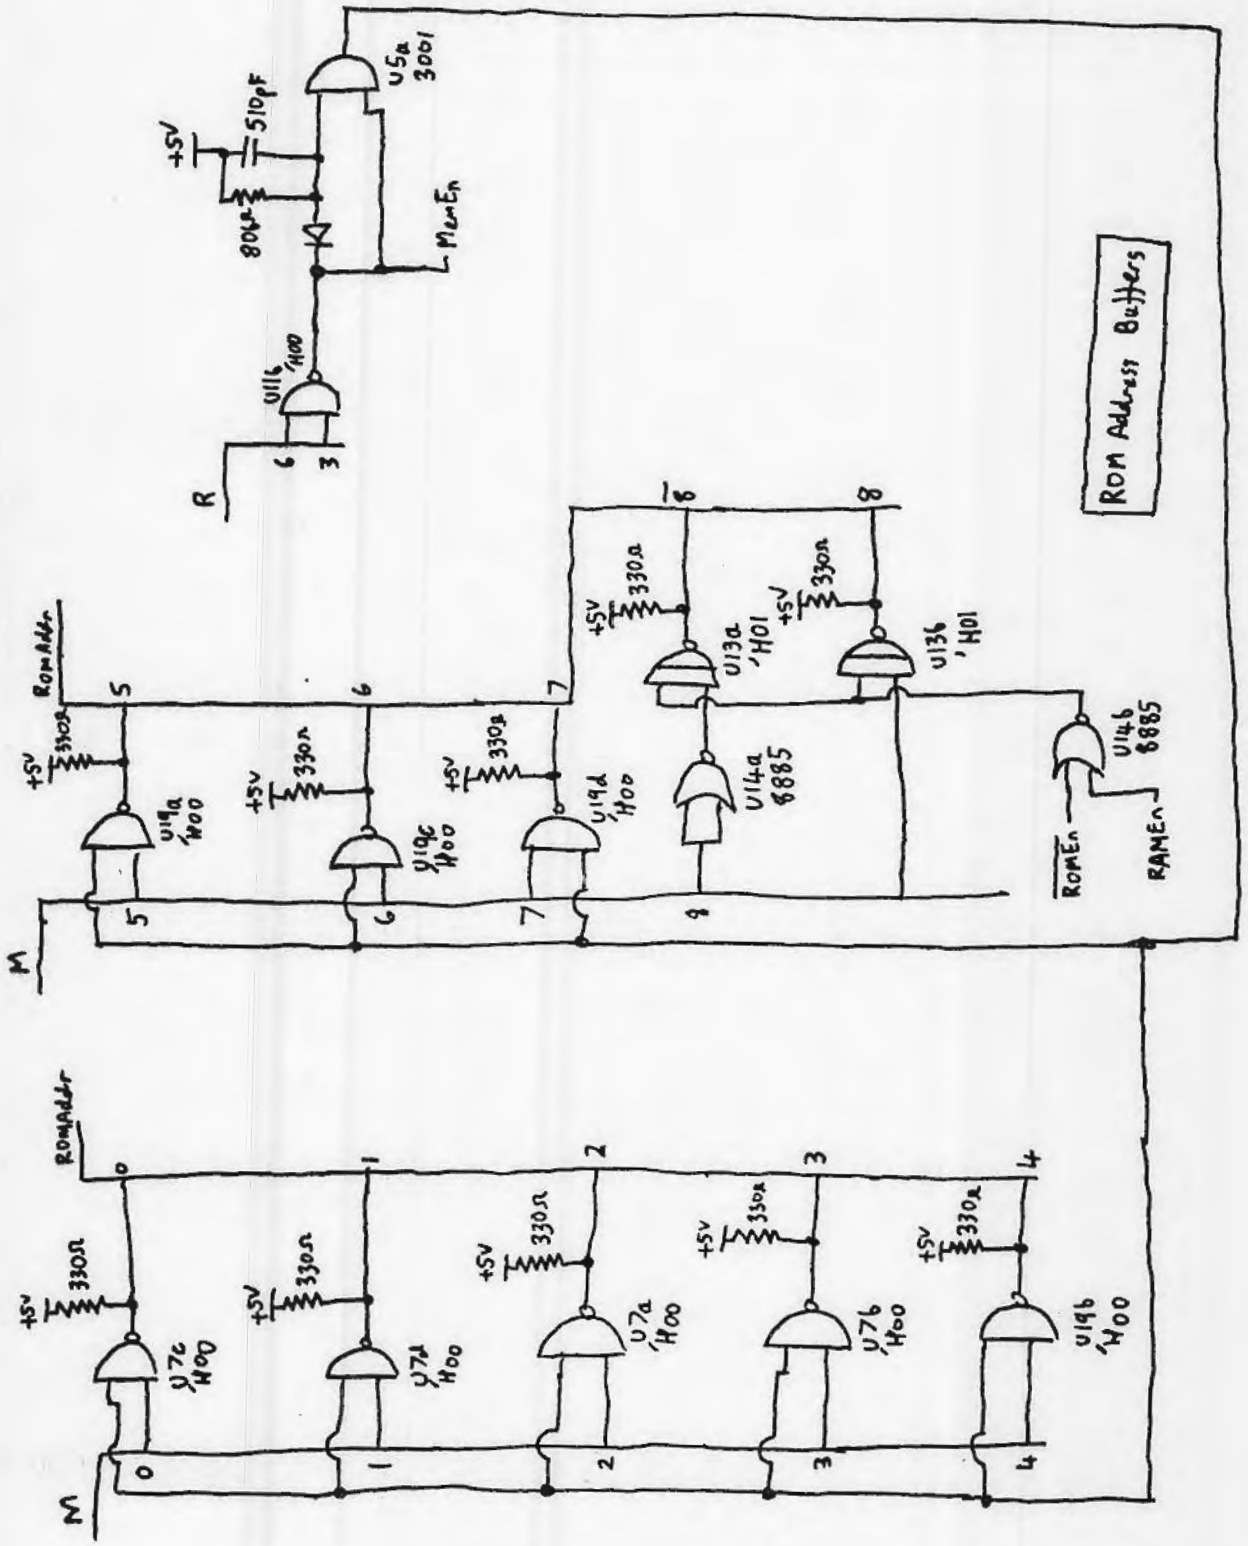 M
ROMAddr
0
+5V
330Ω
U7c
'H00
0
1
+5V
330Ω
U7d
'H00
1
2
+5V
330Ω
U7a
'H00
2
3
+5V
330Ω
U7b
'H00
3
4
+5V
330Ω
U19b
'H00
4
M
ROMAddr
5
+5V
330Ω
U19a
'H00
5
6
+5V
330Ω
U19c
'H00
6
7
+5V
330Ω
U19d
'H00
7
8
U14a
8885
+5V
330Ω
U13a
'H01
8̅
+5V
330Ω
U13b
'H01
8
R̅O̅M̅E̅n̅
RAMEn
U14b
8885
R
6
3
U11b
'H00
+5V
510pF
MemEn
U5a
3001
ROM Address Buffers